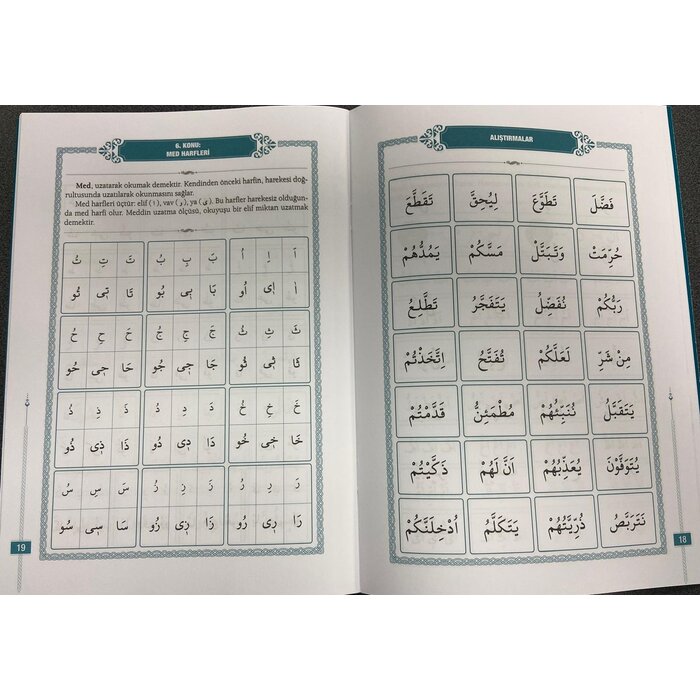 ALIŞTIRMALAR
فَضَّلَ تَطَوَّعَ لِيُحِقَّ تَقَطَّعَ
حُرِّمَتْ وَتَبَتَّلْ مَسَّكُمْ يَمُدُّهُمْ
رَبُّكُمْ نُفَضِّلُ يَتَفَجَّرُ تَطَّلِعُ
مِنْ شَرِّ لَعَلَّكُمْ تُفَتَّحُ اِتَّخَذْتُمْ
يَتَقَبَّلُ نُنَبِّئُهُمْ مُطْمَئِنٌّ قَدَّمْتُمْ
يُتَوَفَّوْنَ يُعَذِّبُهُمْ اَنَّ لَهُمْ ذَكَّيْتُمْ
نَتَرَبَّصُ ذُرِّيَّتُهُمْ يَتَكَلَّمُ اُدْخِلَنَّكُمْ
18
6. KONU:
MED HARFLERİ
Med, uzatarak okumak demektir. Kendinden önceki harfin, harekesi doğ-
rultusunda uzatılarak okunmasını sağlar.
Med harfleri üçtür: elif (ا), vav (و), ya (ى). Bu harfler harekesiz olduğun-
da med harfi olur. Meddin uzatma ölçüsü, okuyuşu bir elif miktarı uzatmak
demektir.
اَ اِ اُ بَ بِ بُ تَ تِ تُ
اٰ اِى اُو بَا بِى بُو تَا تِى تُو
ثَ ثِ ثُ جَ جِ جُ حَ حِ حُ
ثَا ثِى ثُو جَا جِى جُو حَا حِى حُو
خَ خِ خُ دَ دِ دُ ذَ ذِ ذُ
خَا خِى خُو دَا دِى دُو ذَا ذِى ذُو
رَ رِ رُ زَ زِ زُ سَ سِ سُ
رَا رِى رُو زَا زِى زُو سَا سِى سُو
19